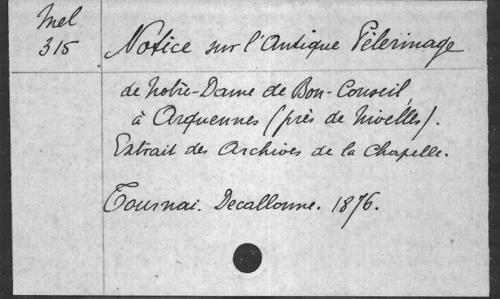 Mel
315
Notice sur l'Antique Pèlerinage
de Notre-Dame de Bon-Conseil,
à Arquennes (près de Nivelles).
Extrait des Archives de la Chapelle.
Tournai. Decallonne. 1876.